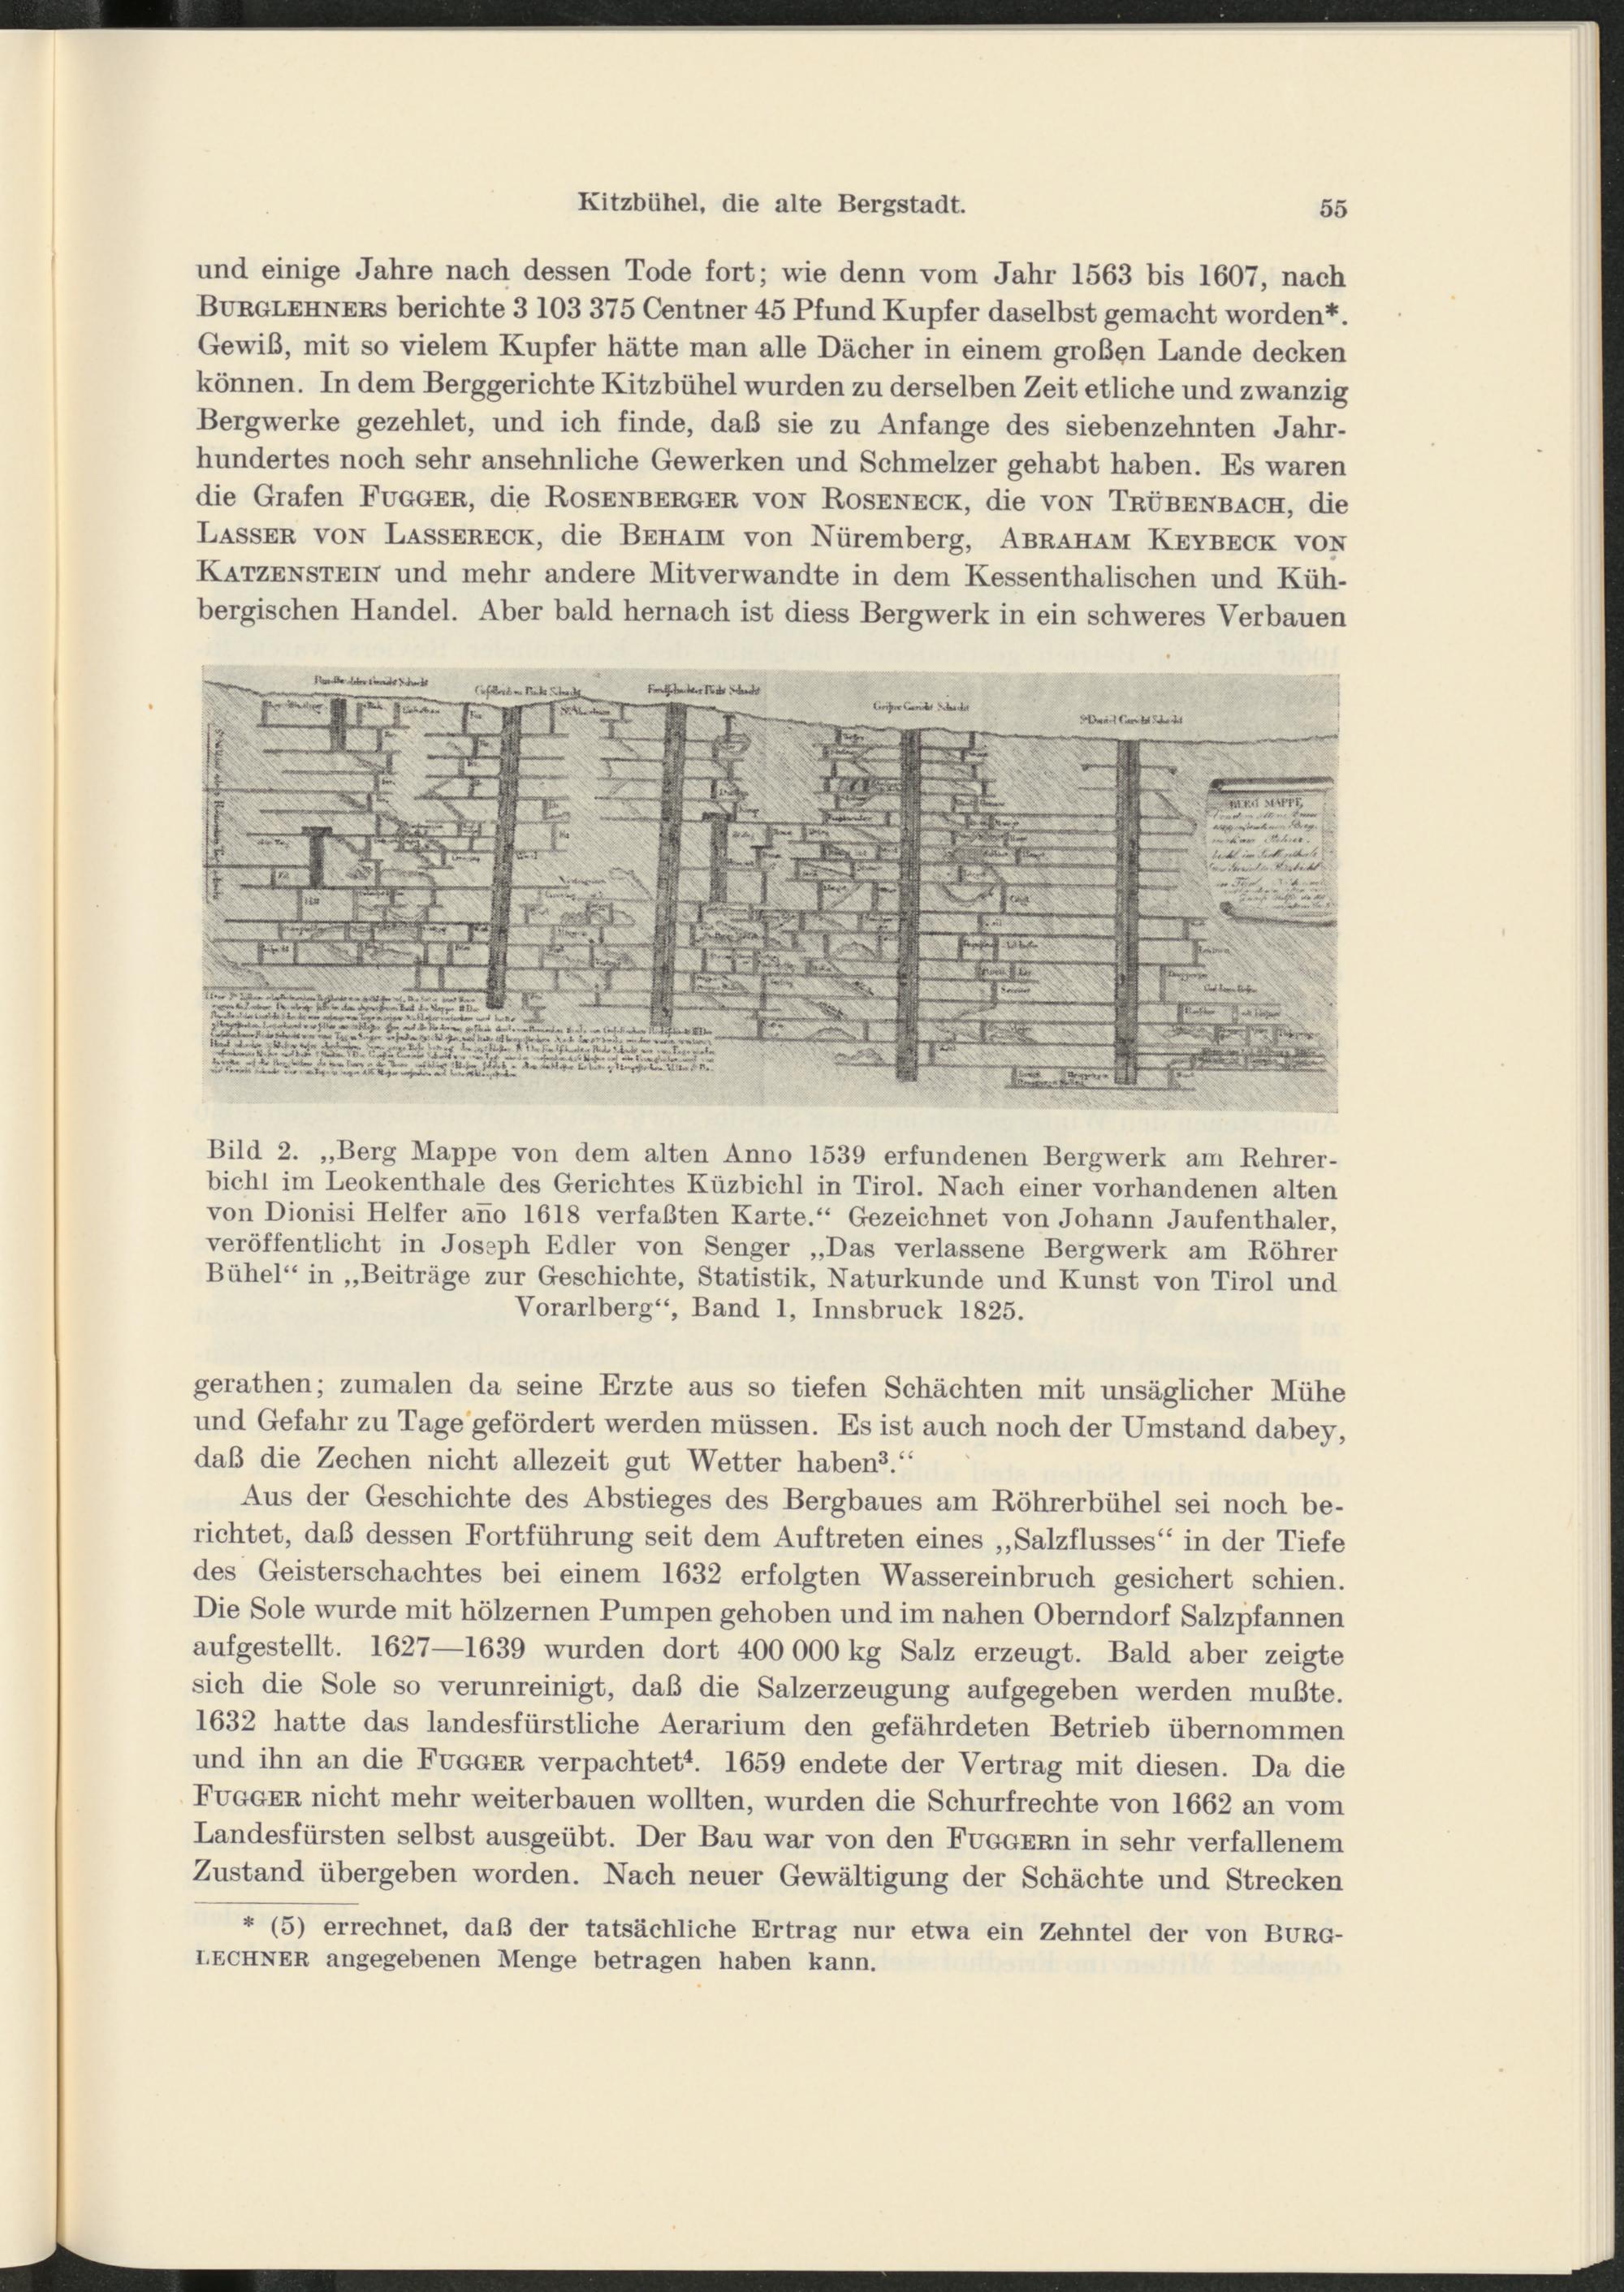 Kitzbühel, die alte Bergstadt. 55
und einige Jahre nach dessen Tode fort; wie denn vom Jahr 1563 bis 1607, nach
BURGLEHNERS berichte 3 103 375 Centner 45 Pfund Kupfer daselbst gemacht worden*.
Gewiß, mit so vielem Kupfer hätte man alle Dächer in einem großen Lande decken
können. In dem Berggerichte Kitzbühel wurden zu derselben Zeit etliche und zwanzig
Bergwerke gezehlet, und ich finde, daß sie zu Anfange des siebenzehnten Jahr-
hundertes noch sehr ansehnliche Gewerken und Schmelzer gehabt haben. Es waren
die Grafen FUGGER, die ROSENBERGER VON ROSENECK, die VON TRÜBENBACH, die
LASSER VON LASSERECK, die BEHAIM von Nüremberg, ABRAHAM KEYBECK VON
KATZENSTEIN und mehr andere Mitverwandte in dem Kessenthalischen und Küh-
bergischen Handel. Aber bald hernach ist diess Bergwerk in ein schweres Verbauen
BERG MAPPE
Bild 2. „Berg Mappe von dem alten Anno 1539 erfundenen Bergwerk am Rehrer-
bichl im Leokenthale des Gerichtes Küzbichl in Tirol. Nach einer vorhandenen alten
von Dionisi Helfer año 1618 verfaßten Karte.“ Gezeichnet von Johann Jaufenthaler,
veröffentlicht in Joseph Edler von Senger „Das verlassene Bergwerk am Röhrer
Bühel“ in „Beiträge zur Geschichte, Statistik, Naturkunde und Kunst von Tirol und
Vorarlberg“, Band 1, Innsbruck 1825.
gerathen; zumalen da seine Erzte aus so tiefen Schächten mit unsäglicher Mühe
und Gefahr zu Tage gefördert werden müssen. Es ist auch noch der Umstand dabey,
daß die Zechen nicht allezeit gut Wetter haben³.“
Aus der Geschichte des Abstieges des Bergbaues am Röhrerbühel sei noch be-
richtet, daß dessen Fortführung seit dem Auftreten eines „Salzflusses“ in der Tiefe
des Geisterschachtes bei einem 1632 erfolgten Wassereinbruch gesichert schien.
Die Sole wurde mit hölzernen Pumpen gehoben und im nahen Oberndorf Salzpfannen
aufgestellt. 1627—1639 wurden dort 400 000 kg Salz erzeugt. Bald aber zeigte
sich die Sole so verunreinigt, daß die Salzerzeugung aufgegeben werden mußte.
1632 hatte das landesfürstliche Aerarium den gefährdeten Betrieb übernommen
und ihn an die FUGGER verpachtet⁴. 1659 endete der Vertrag mit diesen. Da die
FUGGER nicht mehr weiterbauen wollten, wurden die Schurfrechte von 1662 an vom
Landesfürsten selbst ausgeübt. Der Bau war von den FUGGERn in sehr verfallenem
Zustand übergeben worden. Nach neuer Gewältigung der Schächte und Strecken
* (5) errechnet, daß der tatsächliche Ertrag nur etwa ein Zehntel der von BURG-
LECHNER angegebenen Menge betragen haben kann.